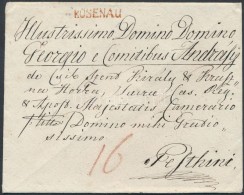 ROSENAU
Illustrissimo Domino Domino
Georgio e Comitibus Andrassy
de Csik Szent Kiraly &
Horka, Sacræ Cæs. Reg.
& Apos. Majestatis Camerario
titt. Domino mihi Gratio
sissimo
16 Pesthini